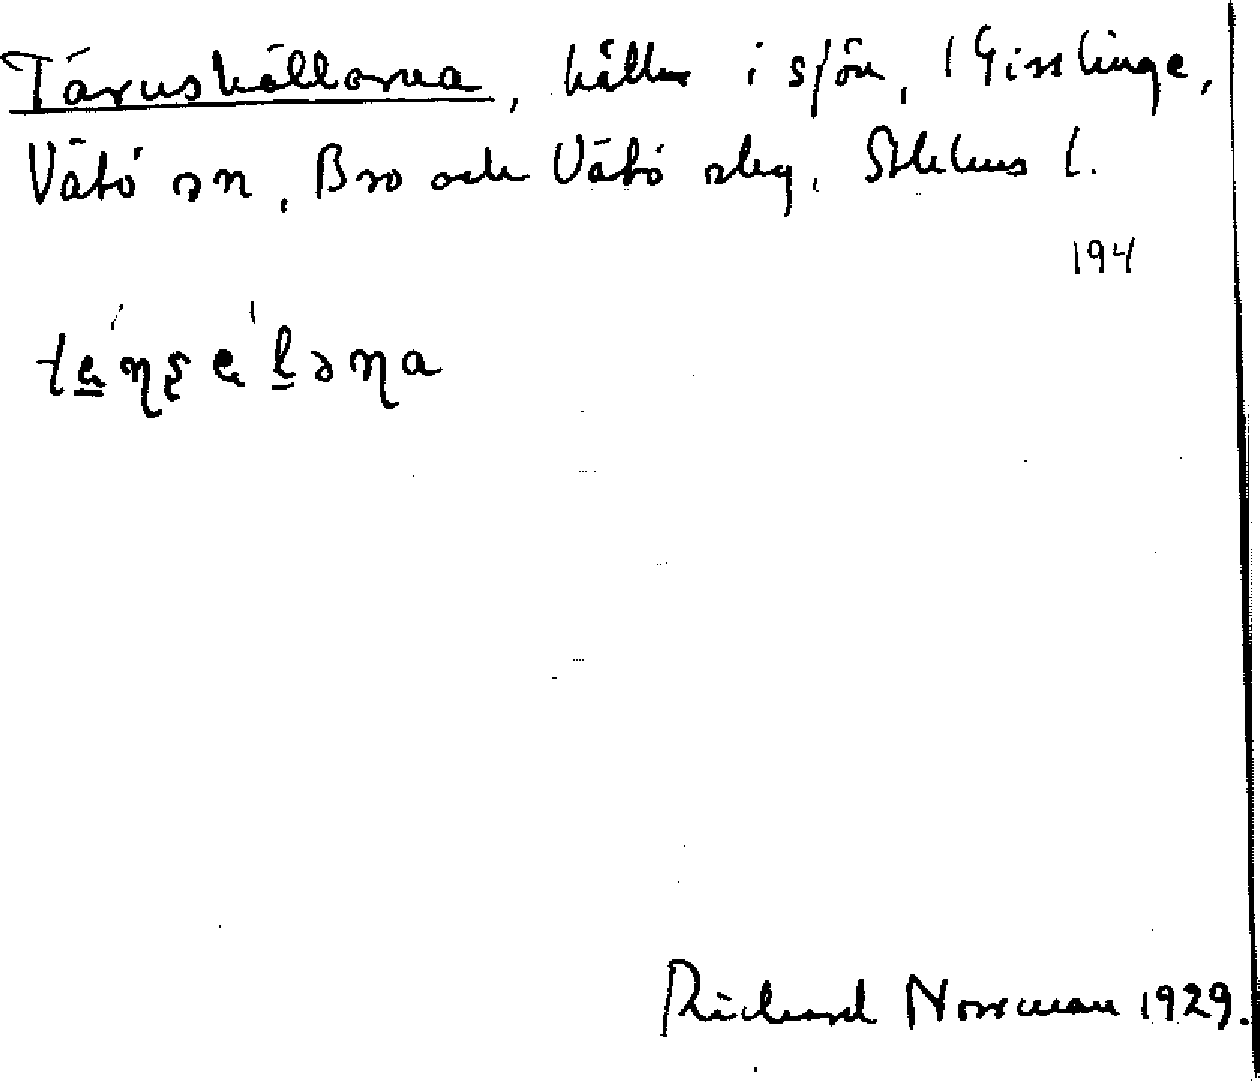 Tärnskällorna, källor i sjön, 1 Gisslinge,
Vätö sn, Bro och Vätö skg, Sthlms l.
194
Richard Norrman 1929.